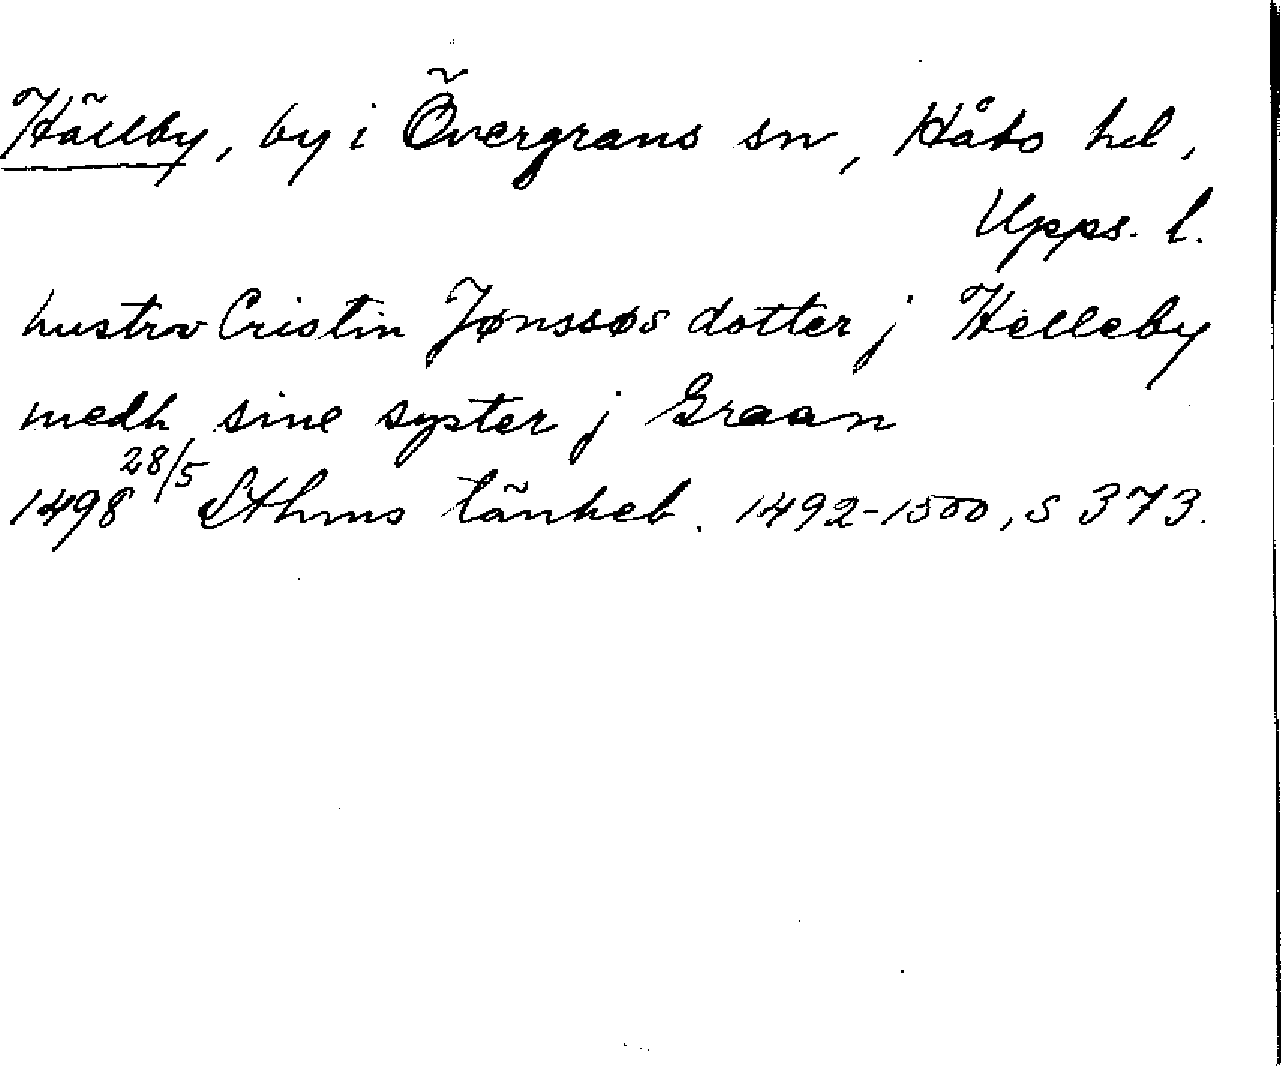 Hällby, by i Övergrans sn, Håbo hd,
Upps. l.
hustrv Cristin Jønssøs dotter j Helleby
medh sine syster j Graan
1498 28/5 Sthms tänkeb. 1492-1500, s 373.